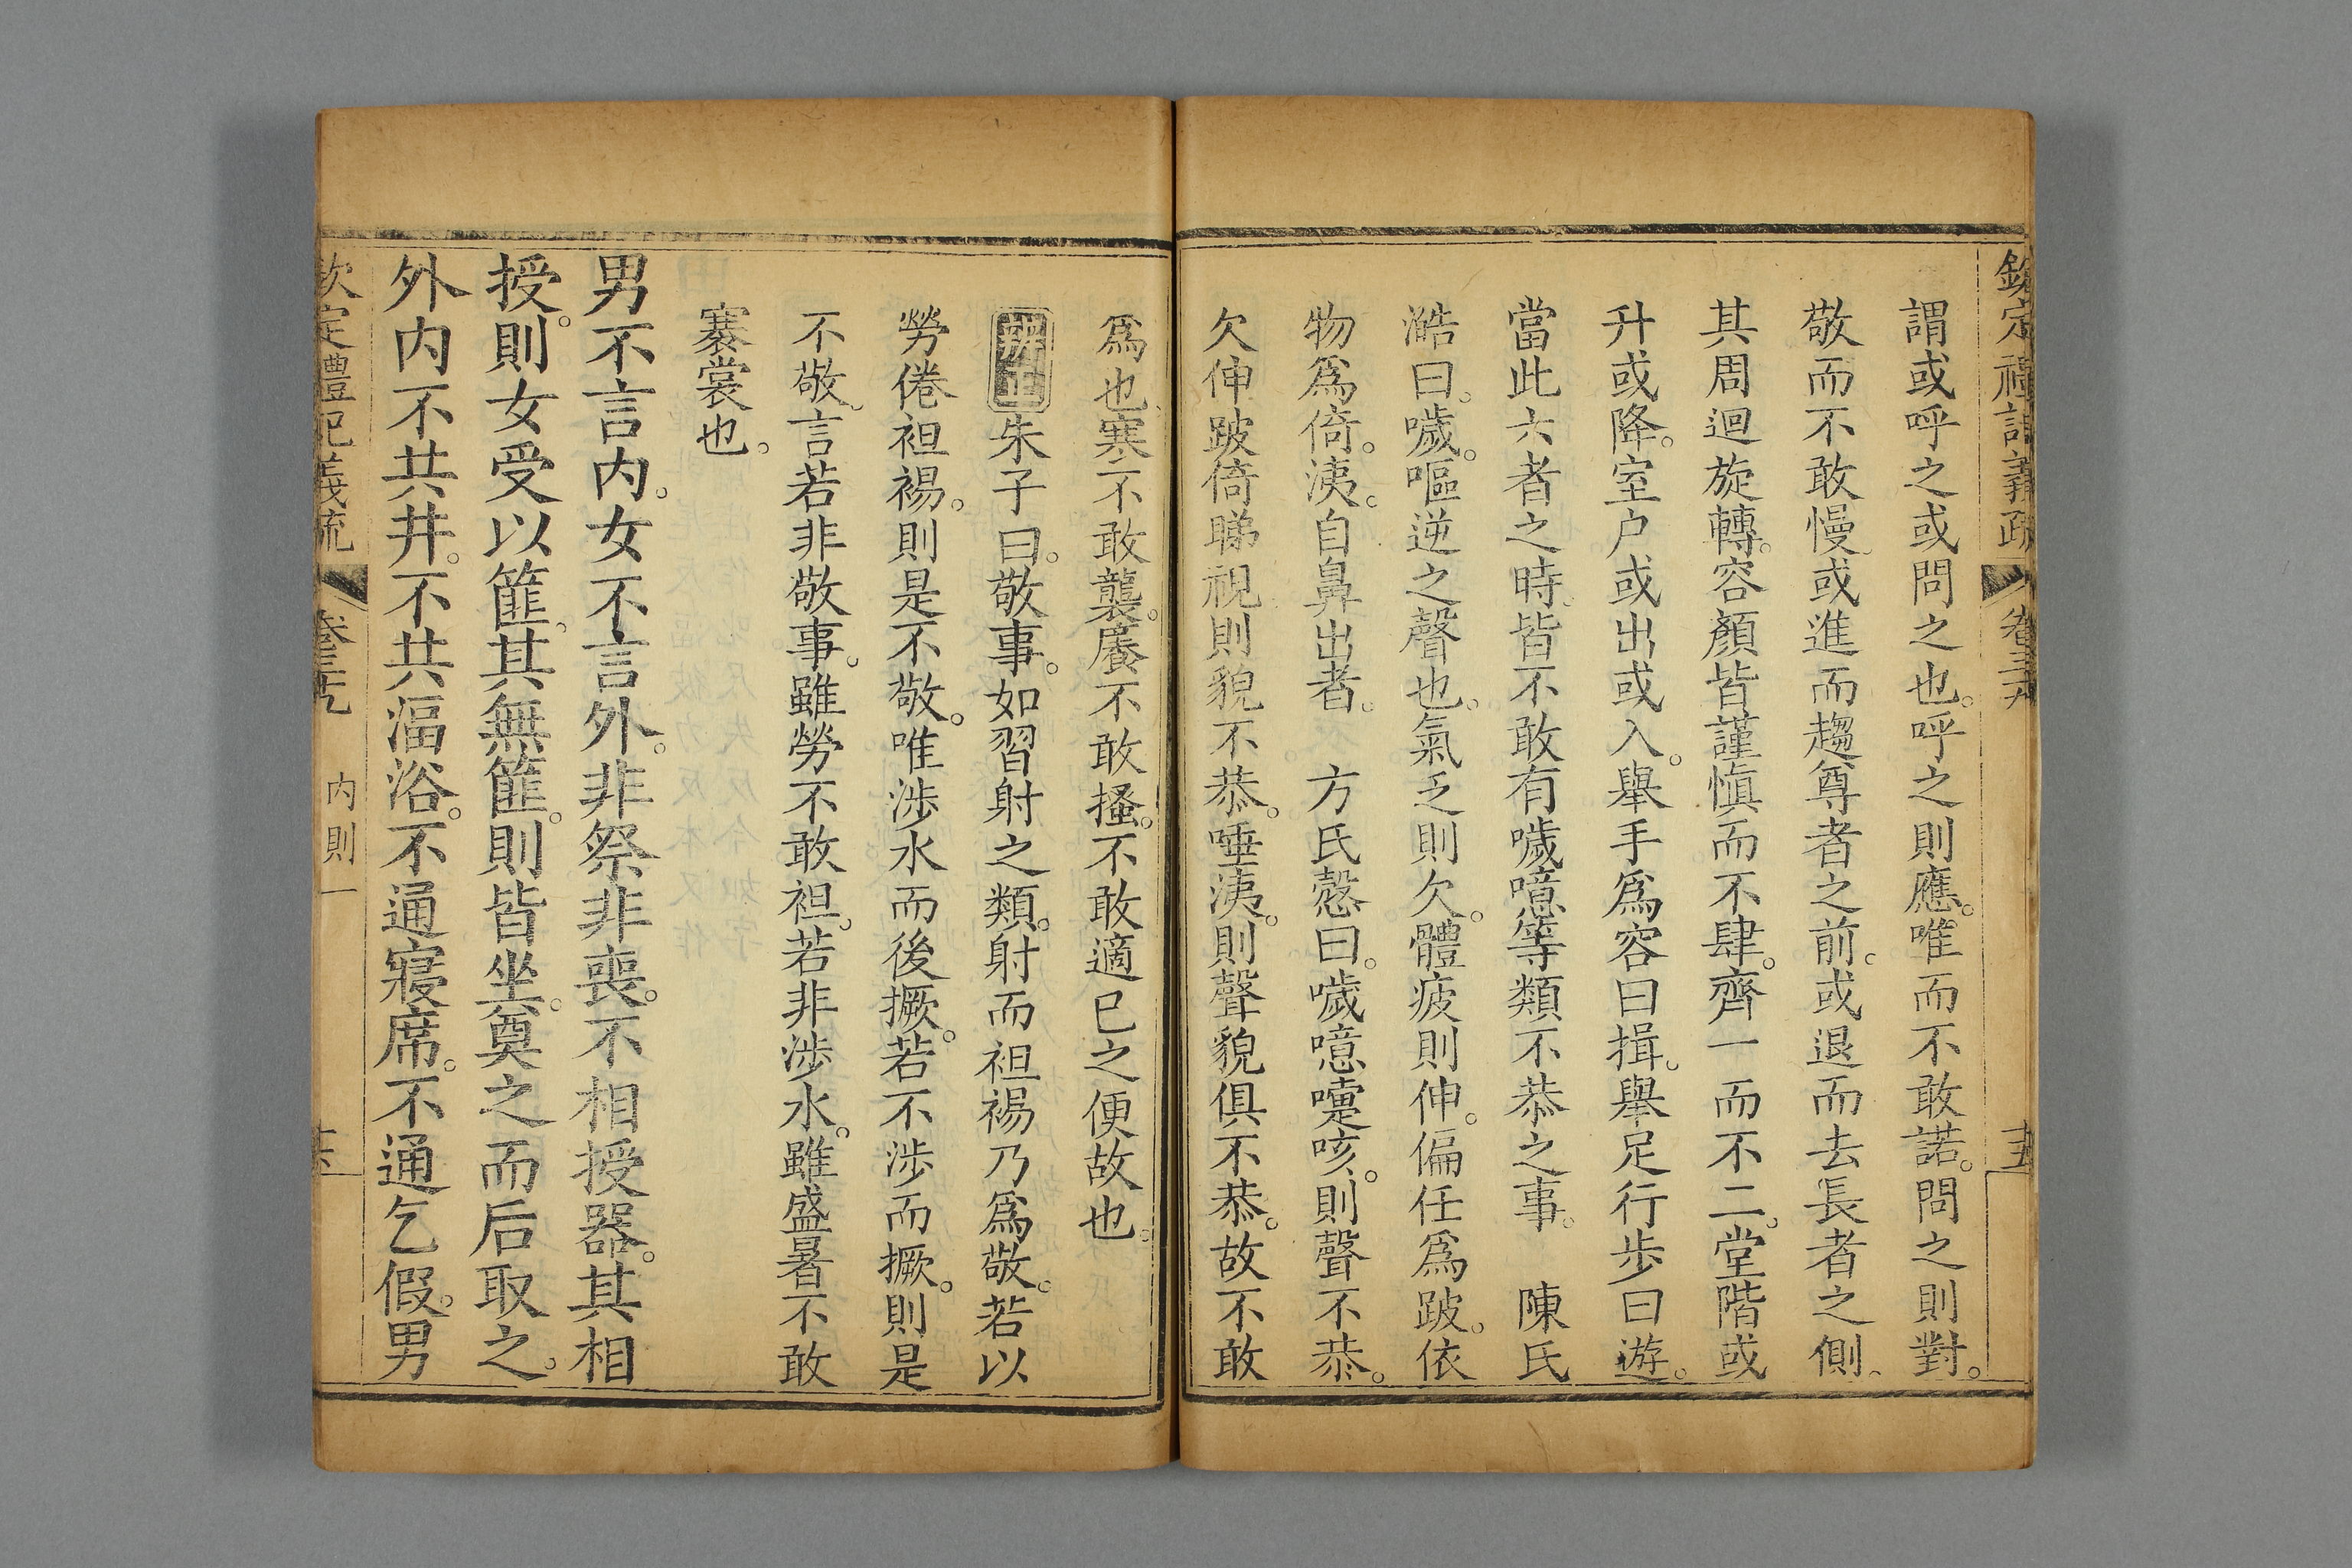 欽定禮記義疏 卷三十九 十五
謂或呼之或問之也。呼之則應。唯而不敢諾。問之則對。
敬而不敢慢。或進而趨尊者之前。或退而去長者之側。
其周迴旋轉。容顏皆謹慎而不肆。齊一而不二。堂階或
升或降。室户或出或入。舉手為容曰揖。舉足行步曰遊。
當此六者之時。皆不敢有噦噫等類不恭之事。 陳氏
澔曰。噦。嘔逆之聲也。氣乏則欠。體疲則伸。偏任為跛。依
物為倚。洟。自鼻出者。 方氏慤曰。噦噫嚏咳。則聲不恭。
欠伸跛倚睇視則貌不恭。唾洟。則聲貌俱不恭。故不敢
為也。寒不敢襲。癢不敢搔。不敢適已之便故也。
辨正朱子曰。敬事。如習射之類。射而袒裼乃為敬。若以
勞倦袒裼。則是不敬。唯涉水而後撅。若不涉而撅。則是
不敬。言若非敬事。雖勞不敢袒。若非涉水。雖盛暑不敢
褰裳也。
男不言内。女不言外。非祭非喪。不相授器。其相
授。則女受以篚。其無篚。則皆坐。奠之而后取之。
外内不共井。不共湢浴。不通寢席。不通乞假。男
欽定禮記義疏 卷三十九 内則 十六